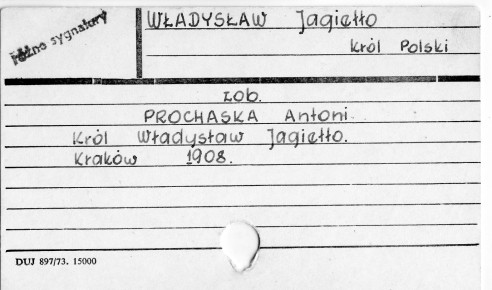 różne sygnatury
WŁADYSŁAW Jagiełło
Król Polski
zob.
PROCHASKA Antoni
Król Władysław Jagiełło.
Kraków 1908.
DUJ 897/73. 15000